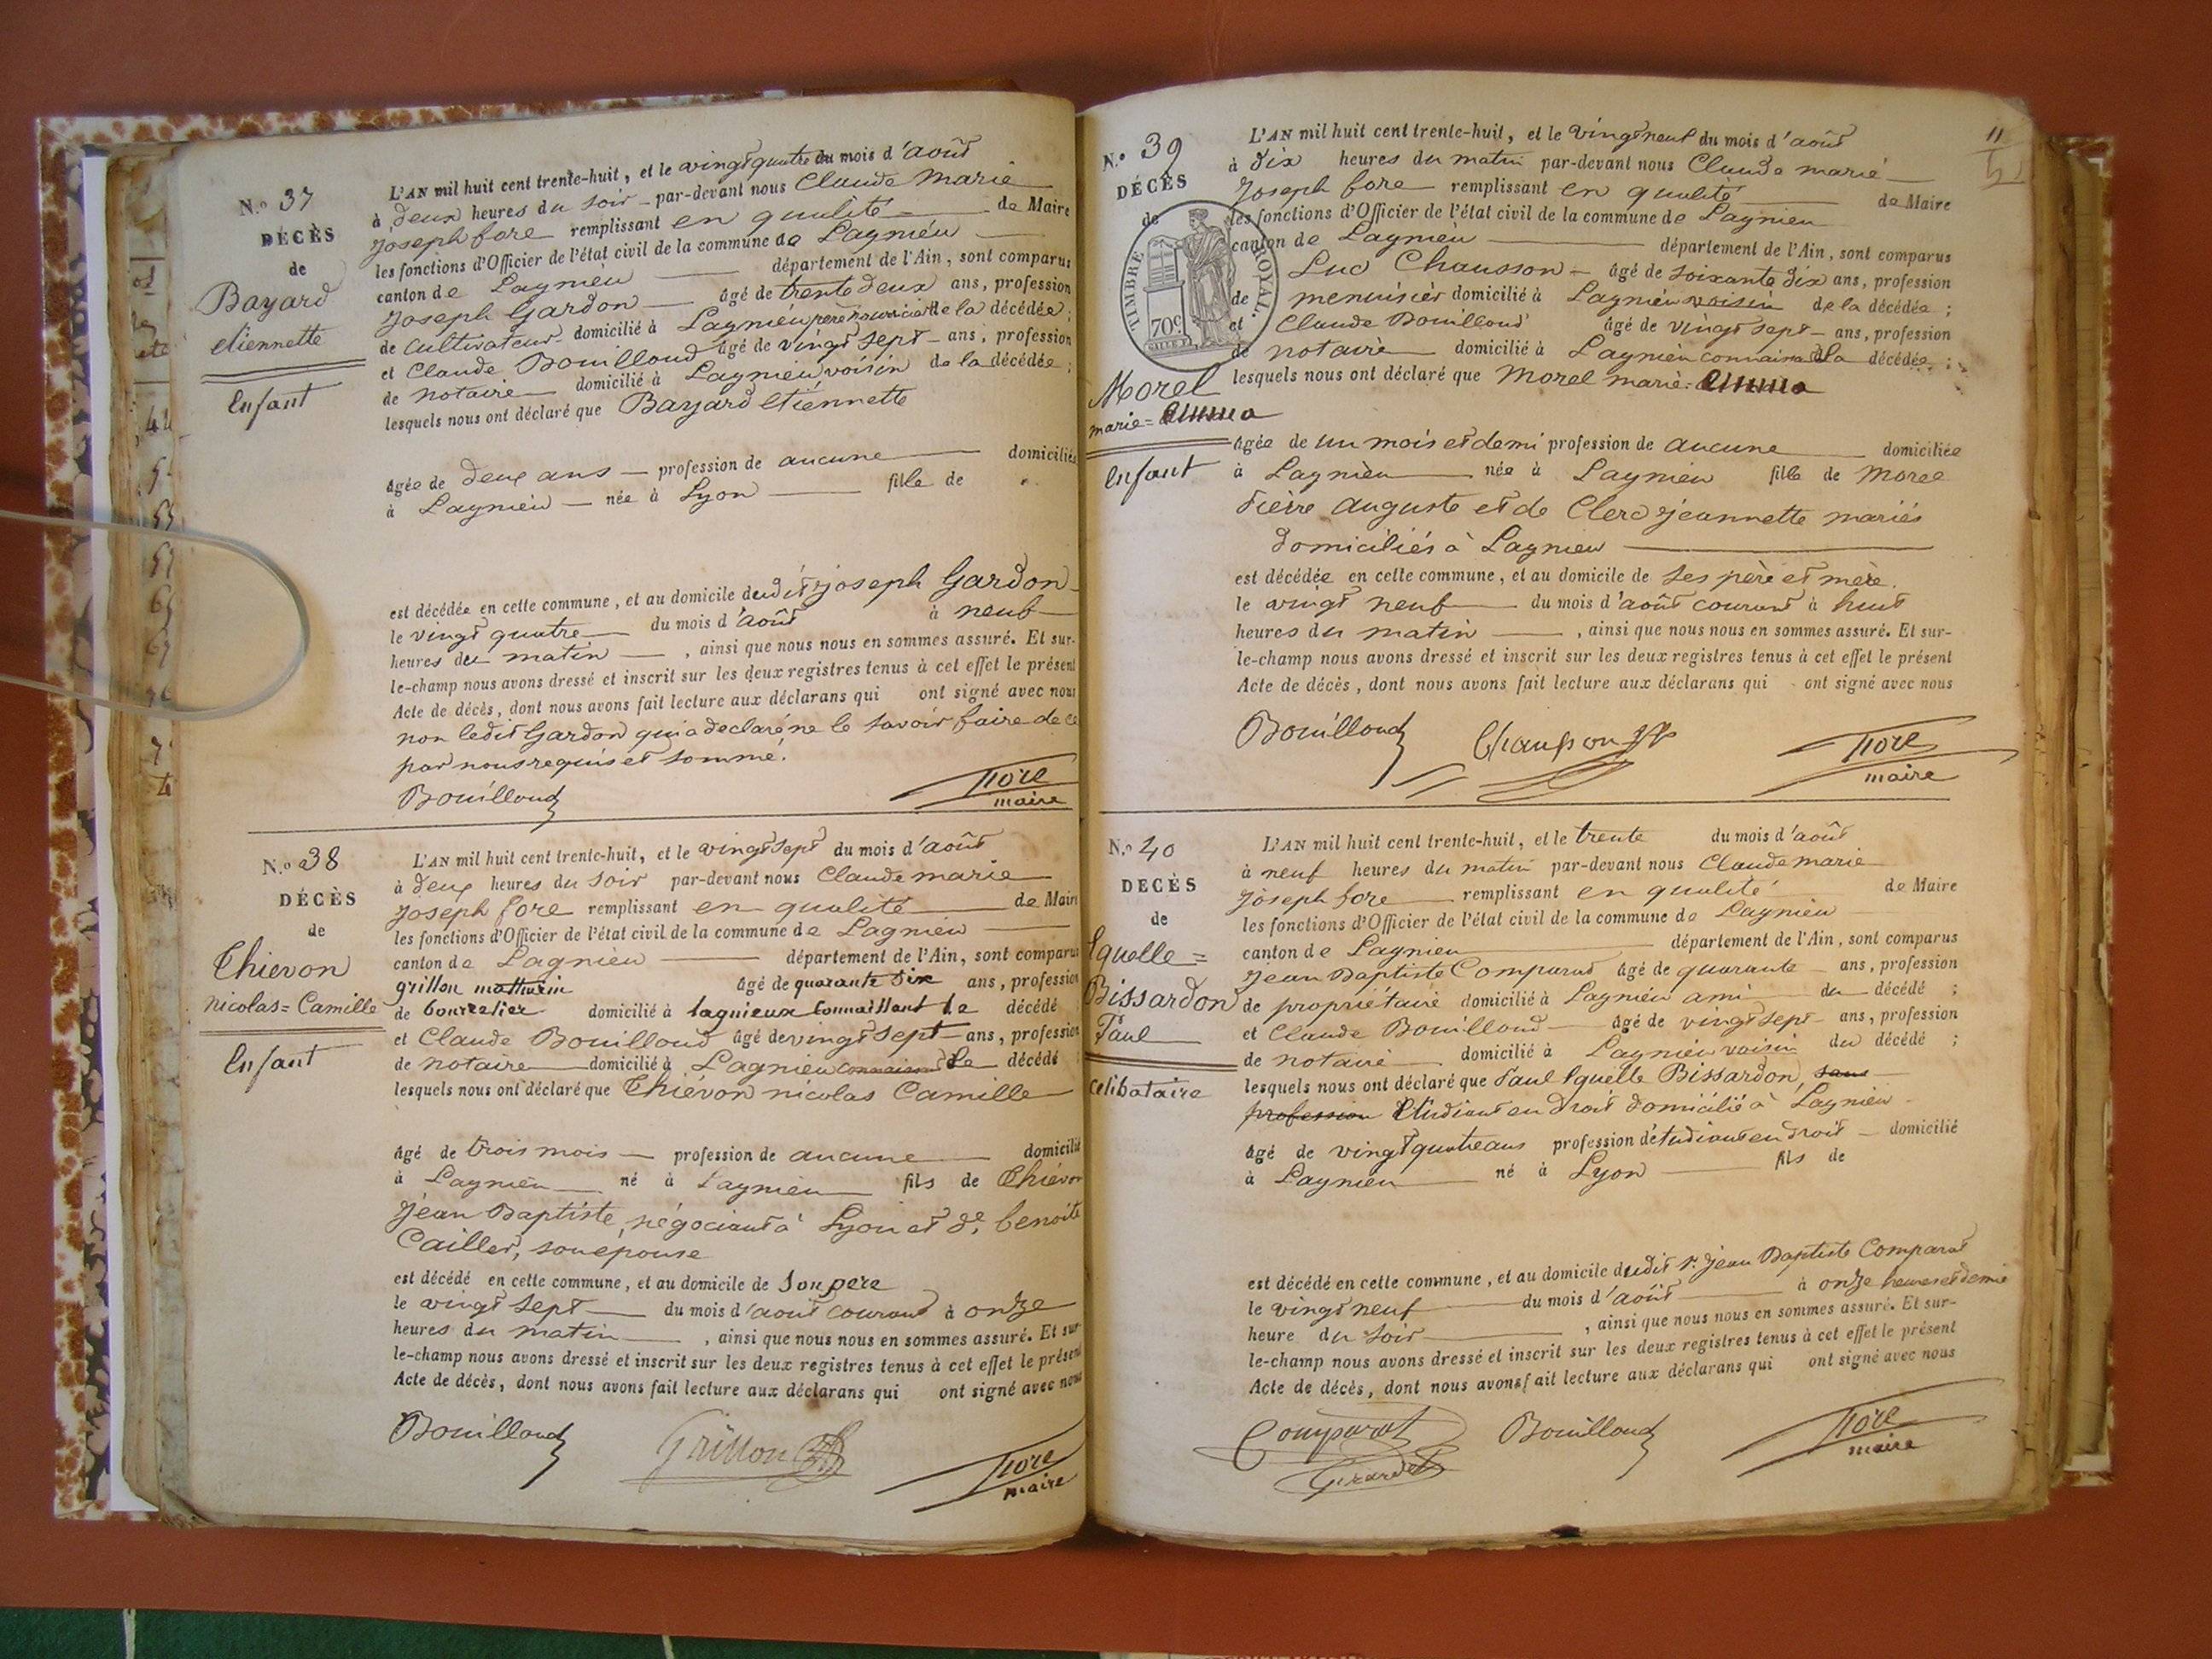 N.º 37
DÉCÈS
de
Bayard
etiennette
Enfant
L'AN mil huit cent trente-huit, et le vingt quatre du mois d'août
à deux heures du soir par-devant nous Claude Marie
Joseph fore remplissant en qualité de Maire
les fonctions d'Officier de l'état civil de la commune de Lagnieu
canton de Lagnieu département de l'Ain, sont comparus
Joseph Gardon âgé de trente deux ans, profession
de cultivateur domicilié à Lagnieu pere nourricier de la décédée ;
et Claude Bouilloud âgé de vingt sept ans, profession
de notaire domicilié à Lagnieu voisin de la décédée ;
lesquels nous ont déclaré que Bayard Etiennette
âgée de deux ans profession de aucune domiciliée
à Lagnieu née à Lyon fille de
est décédée en cette commune, et au domicile dudit joseph Gardon
le vingt quatre du mois d'août à neuf
heures du matin , ainsi que nous nous en sommes assuré. Et sur-
le-champ nous avons dressé et inscrit sur les deux registres tenus à cet effet le présent
Acte de décès, dont nous avons fait lecture aux déclarans qui ont signé avec nous
non ledit Gardon qui a declaré ne le savoir faire de ce
par nous requis et sommé.
Bouilloud
fore
maire
N.º 38
DÉCÈS
de
Thievon
nicolas=Camille
Enfant
L'AN mil huit cent trente-huit, et le vingt sept du mois d'août
à deux heures du soir par-devant nous Claude marie
Joseph fore remplissant en qualité de Maire
les fonctions d'Officier de l'état civil de la commune de Lagnieu
canton de Lagnieu département de l'Ain, sont comparus
grillon mathurin âgé de quarante six ans, profession
de bourrelier domicilié à lagnieux connaissant le décédé
et Claude Bouilloud âgé de vingt sept ans, profession
de notaire domicilié à Lagnieu connaissant le décédé
lesquels nous ont déclaré que Thiévon nicolas Camille
âgé de trois mois profession de aucune domicilié
à Lagnieu né à Lagnieu fils de Thiévon
Jean Baptiste, négociant à Lyon et de benoite
Cailler, son epouse
est décédé en cette commune, et au domicile de son pere
le vingt sept du mois d'aout courant à onze
heures du matin , ainsi que nous nous en sommes assuré. Et sur-
le-champ nous avons dressé et inscrit sur les deux registres tenus à cet effet le présent
Acte de décès, dont nous avons fait lecture aux déclarans qui ont signé avec nous
Bouilloud
Grillon
fore
maire
11
N.º 39
DÉCÈS
de
TIMBRE ROYAL.
70 c
Morel
marie=Emma
Enfant
L'AN mil huit cent trente-huit, et le vingt neuf du mois d'août
à dix heures du matin par-devant nous Claude marie
Joseph fore remplissant en qualité de Maire
les fonctions d'Officier de l'état civil de la commune de Lagnieu
canton de Lagnieu département de l'Ain, sont comparus
Luc Chausson âgé de soixante dix ans, profession
de menuisier domicilié à Lagnieu voisin de la décédée ;
et Claude Bouilloud âgé de vingt sept ans, profession
de notaire domicilié à Lagnieu connaissant la décédée ;
lesquels nous ont déclaré que Morel marie=Emma
âgée de un mois et demi profession de aucune domiciliée
à Lagnieu née à Lagnieu fille de Morel
Pierre Auguste et de Clerc jeannette mariés
domiciliés à Lagnieu
est décédée en cette commune, et au domicile de ses père et mère.
le vingt neuf du mois d'août courant à huit
heures du matin , ainsi que nous nous en sommes assuré. Et sur-
le-champ nous avons dressé et inscrit sur les deux registres tenus à cet effet le présent
Acte de décès, dont nous avons fait lecture aux déclarans qui ont signé avec nous
Bouilloud
Chausson
fore
maire
N.º 40
DÉCÈS
de
Eguelle=
Bissardon
Paul
Celibataire
L'AN mil huit cent trente-huit, et le trente du mois d'août
à neuf heures du matin par-devant nous Claude marie
Joseph fore remplissant en qualité de Maire
les fonctions d'Officier de l'état civil de la commune de Lagnieu
canton de Lagnieu département de l'Ain, sont comparus
Jean Baptiste Comparat âgé de quarante ans, profession
de propriétaire domicilié à Lagnieu ami du décédé ;
et Claude Bouilloud âgé de vingt sept ans, profession
de notaire domicilié à Lagnieu voisin du décédé ;
lesquels nous ont déclaré que Paul Eguelle Bissardon, sans
profession Etudiant en droit domicilié à Lagnieu
âgé de vingt quatre ans profession d'étudiant en droit domicilié
à Lagnieu né à Lyon fils de
est décédé en cette commune, et au domicile dudit Sr jean Baptiste Comparat
le vingt neuf du mois d'août à onze heures et demie
heure du soir , ainsi que nous nous en sommes assuré. Et sur-
le-champ nous avons dressé et inscrit sur les deux registres tenus à cet effet le présent
Acte de décès, dont nous avons fait lecture aux déclarans qui ont signé avec nous
Comparat
Girardet
Bouilloud
fore
maire